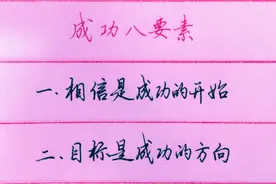 成功八要素
一.相信是成功的开始
二.目标是成功的方向